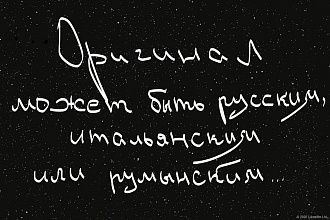 Оригинал
может быть русским,
итальянским
или румынским...